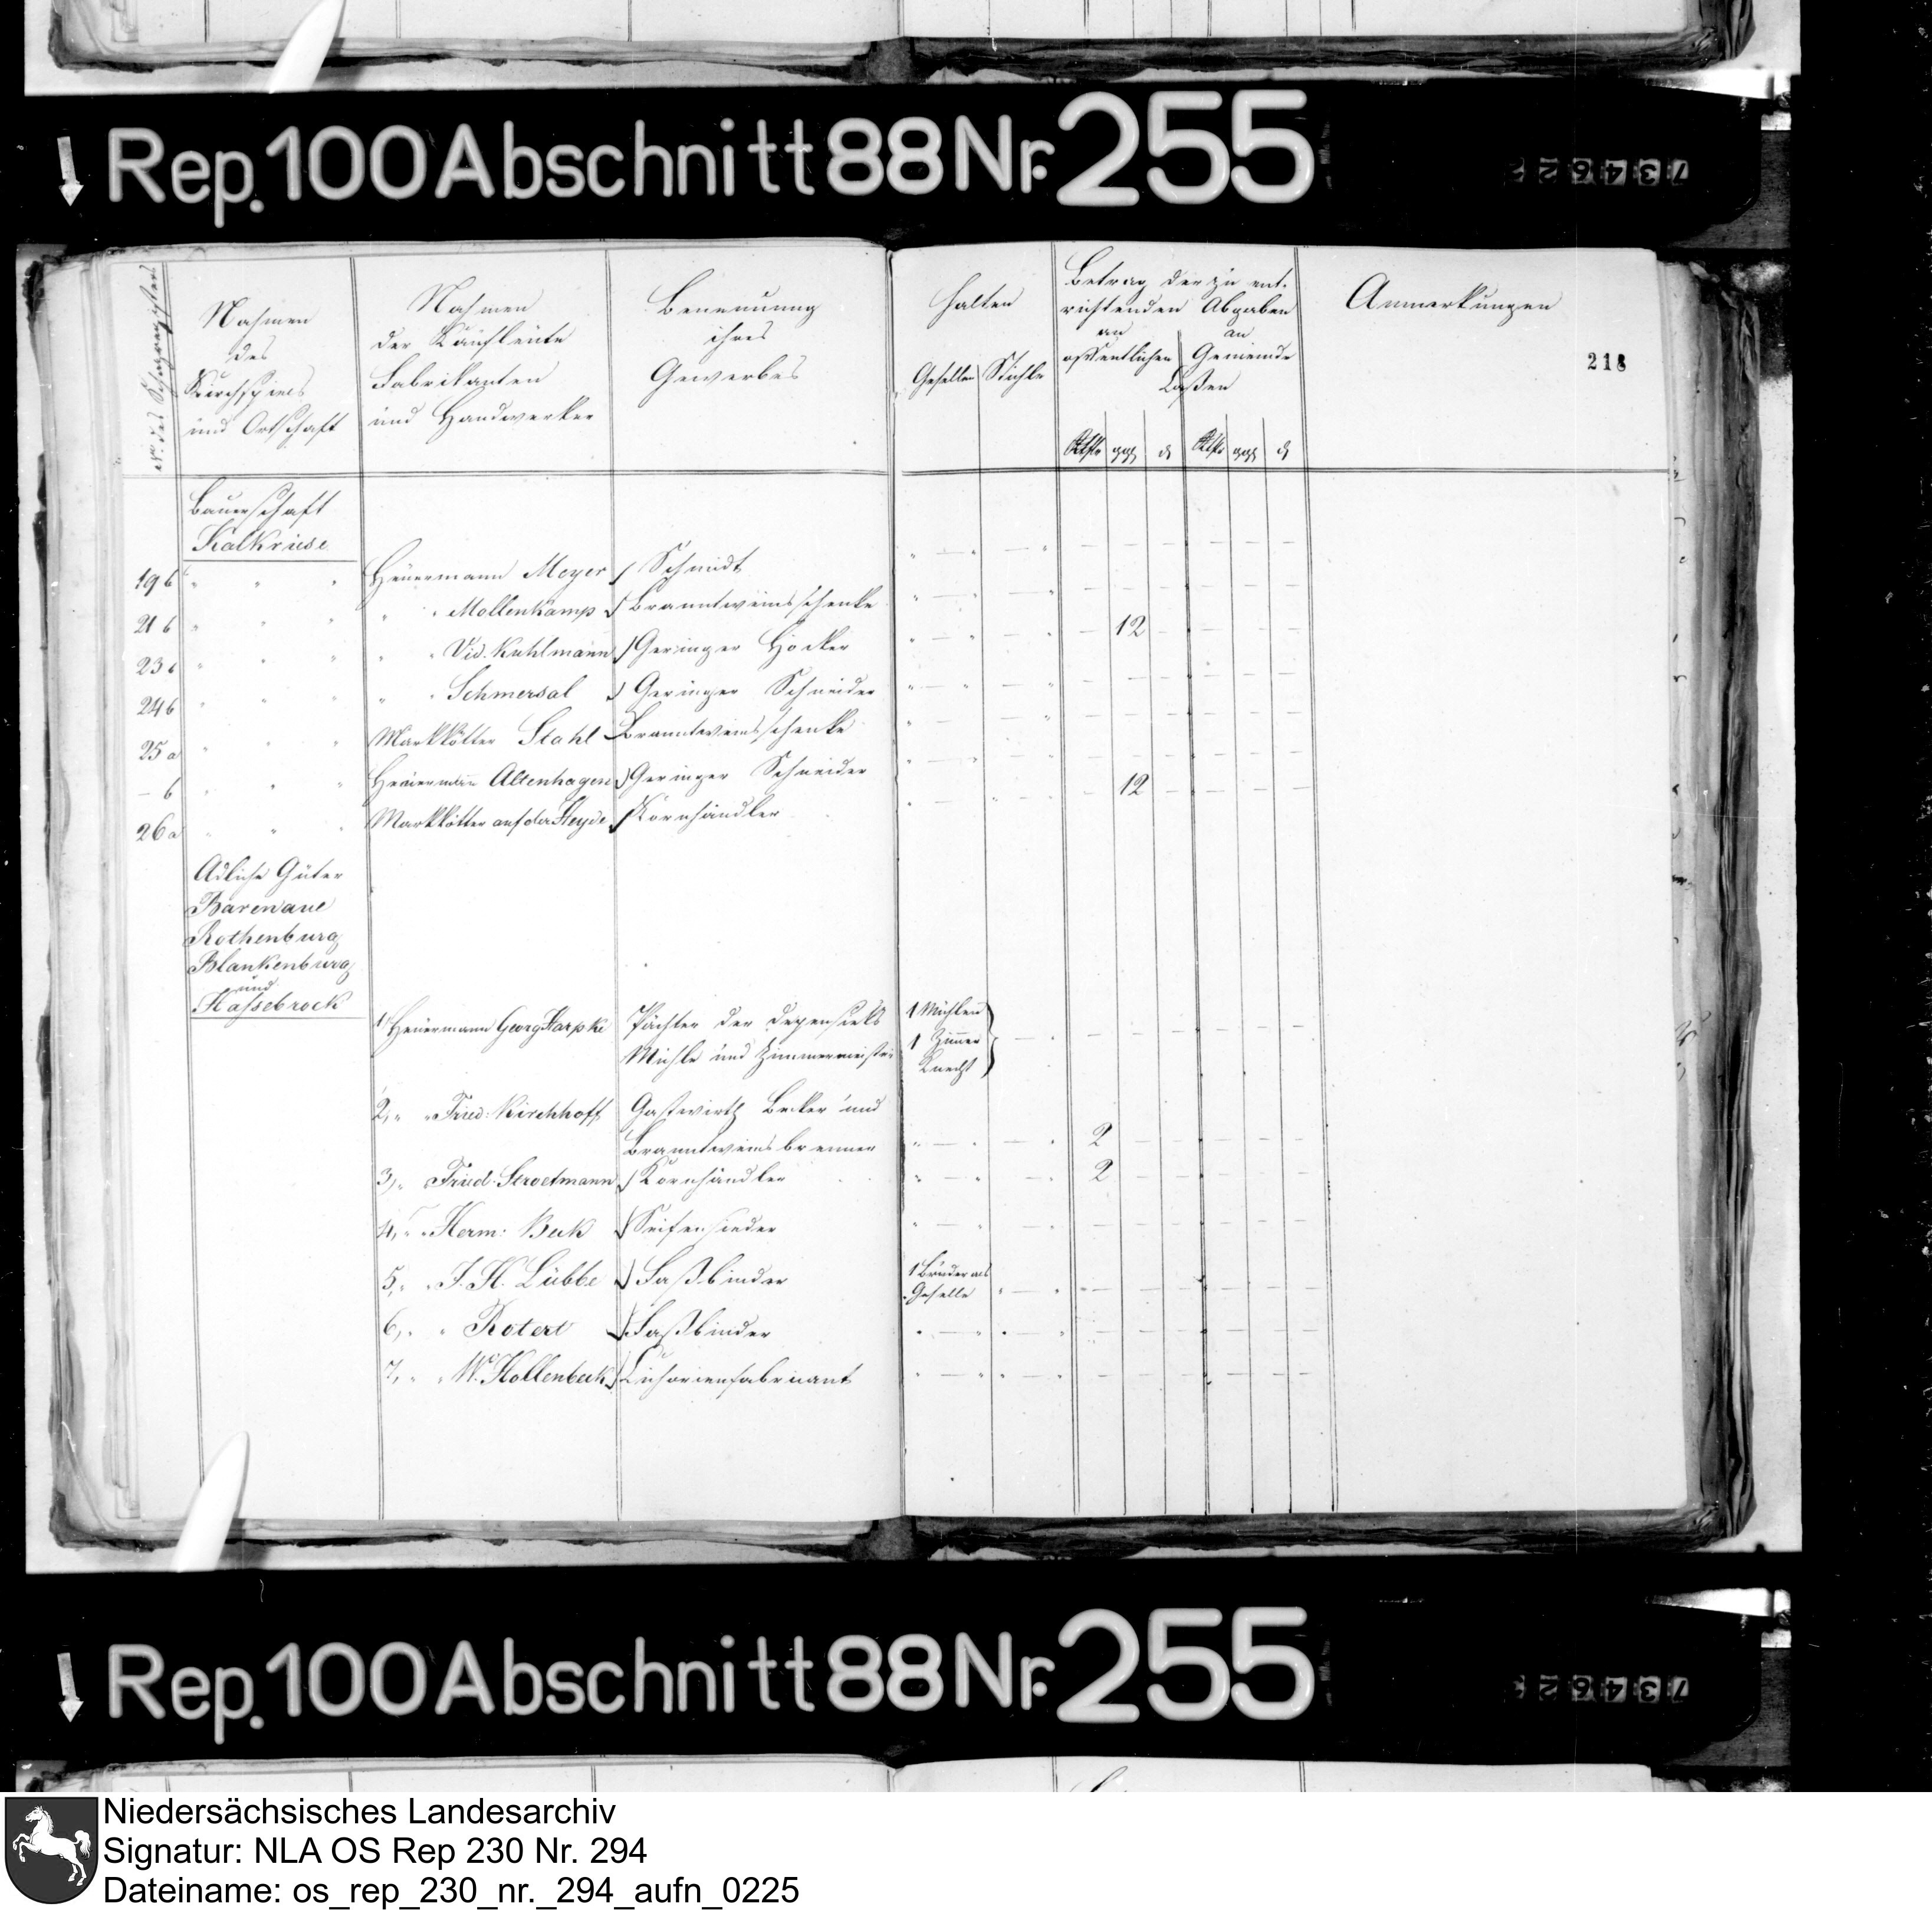 Rep. 100 Abschnitt 88 Nr. 255
734622
No. des Schazregisters
Nahmen
des
Kirchspiels
und Ortschaft
Nahmen
der Kaufleute
Fabrikanten
und Handwerker
Benennung
ihres
Gewerbes
Halten
Gesellen Stühle
Betrag der zu ent-
richtenden Abgaben
an öffentlichen an Gemeinde
Cassen
Rthlr ggl d Rthlr ggl d
Anmerkungen
218
Bauerschaft
Kalkriese
19 b " " " Heuermann Meyer Schmidt
21 b " " " " " Mollenkamp Branntweinsschenke
12
23 b " " " " " Vid. Kuhlmann Geringer Höcker
24 b " " " " " Schmersal Geringer Schneider
25 a " " " Markkötter Stahl Branntweinsschenke
- b " " " Heuermann Altenhagen Geringer Schneider
12
26 a " " " Markkötter auf der Heyde Kornhändler
Adliche Güter
Barenaue
Rothenburg
Blankenburg
und
Hassebrock
1, Heuermann Georg Harpke Pächter der
Mühle und Zimmermeister
1 Mühlen
1 Zimmer
Knecht
2, " " Fried: Kirchhoff Gastwirth Becker und
Branntweinsbrenner
2
3, " Fried. Stroetmann Kornhändler
2
4, " " Herm: Beck Seifensieder
5, " " J. H. Lübbe Faßbinder
1 Bruder als
Geselle
6, " " Rotert Faßbinder
7, " " W. Hollenbeck Cichorienfabricant
Rep. 100 Abschnitt 88 Nr. 255
Niedersächsisches Landesarchiv
Signatur: NLA OS Rep 230 Nr. 294
Dateiname: os_rep_230_nr._294_aufn_0225